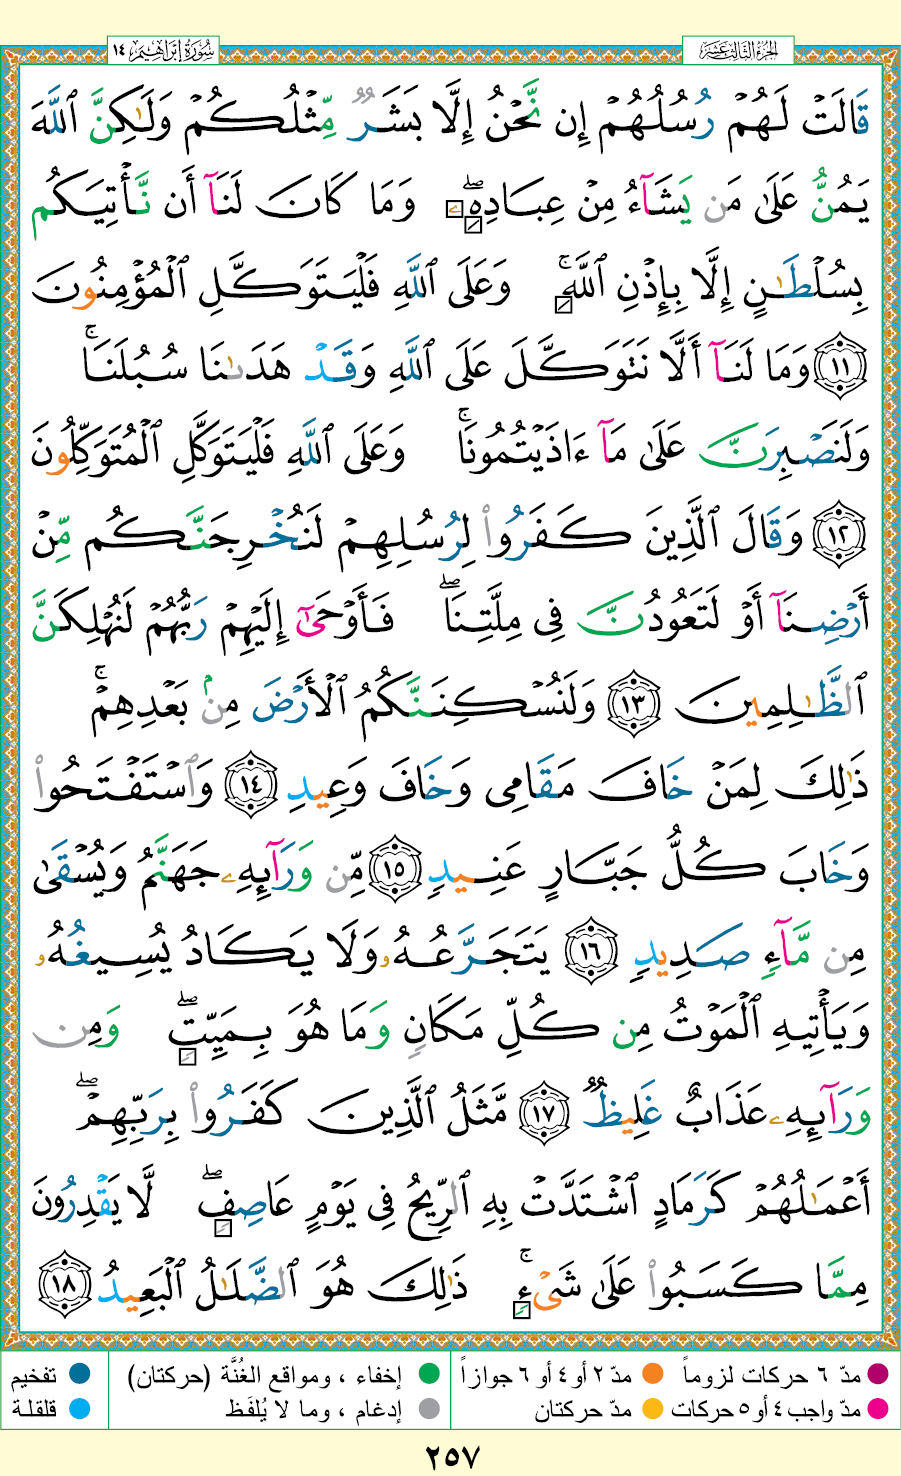 سُورَةُ إِبْرَاهِيمَ ١٤
الجُزْءُ الثَّالِثَ عَشَرَ
قَالَتْ لَهُمْ رُسُلُهُمْ إِن نَّحْنُ إِلَّا بَشَرٌ مِّثْلُكُمْ وَلَٰكِنَّ ٱللَّهَ
يَمُنُّ عَلَىٰ مَن يَشَآءُ مِنْ عِبَادِهِۦ ۖ وَمَا كَانَ لَنَآ أَن نَّأْتِيَكُم
بِسُلْطَٰنٍ إِلَّا بِإِذْنِ ٱللَّهِ ۚ وَعَلَى ٱللَّهِ فَلْيَتَوَكَّلِ ٱلْمُؤْمِنُونَ
١١ وَمَا لَنَآ أَلَّا نَتَوَكَّلَ عَلَى ٱللَّهِ وَقَدْ هَدَىٰنَا سُبُلَنَا ۚ
وَلَنَصْبِرَنَّ عَلَىٰ مَآ ءَاذَيْتُمُونَا ۚ وَعَلَى ٱللَّهِ فَلْيَتَوَكَّلِ ٱلْمُتَوَكِّلُونَ
١٢ وَقَالَ ٱلَّذِينَ كَفَرُوا۟ لِرُسُلِهِمْ لَنُخْرِجَنَّكُم مِّنْ
أَرْضِنَآ أَوْ لَتَعُودُنَّ فِى مِلَّتِنَا ۖ فَأَوْحَىٰٓ إِلَيْهِمْ رَبُّهُمْ لَنُهْلِكَنَّ
ٱلظَّٰلِمِينَ ١٣ وَلَنُسْكِنَنَّكُمُ ٱلْأَرْضَ مِنۢ بَعْدِهِمْ ۚ
ذَٰلِكَ لِمَنْ خَافَ مَقَامِى وَخَافَ وَعِيدِ ١٤ وَٱسْتَفْتَحُوا۟
وَخَابَ كُلُّ جَبَّارٍ عَنِيدٍ ١٥ مِّن وَرَآئِهِۦ جَهَنَّمُ وَيُسْقَىٰ
مِن مَّآءٍ صَدِيدٍ ١٦ يَتَجَرَّعُهُۥ وَلَا يَكَادُ يُسِيغُهُۥ
وَيَأْتِيهِ ٱلْمَوْتُ مِن كُلِّ مَكَانٍ وَمَا هُوَ بِمَيِّتٍ ۖ وَمِن
وَرَآئِهِۦ عَذَابٌ غَلِيظٌ ١٧ مَّثَلُ ٱلَّذِينَ كَفَرُوا۟ بِرَبِّهِمْ ۖ
أَعْمَٰلُهُمْ كَرَمَادٍ ٱشْتَدَّتْ بِهِ ٱلرِّيحُ فِى يَوْمٍ عَاصِفٍ ۖ لَّا يَقْدِرُونَ
مِمَّا كَسَبُوا۟ عَلَىٰ شَىْءٍ ۚ ذَٰلِكَ هُوَ ٱلضَّلَٰلُ ٱلْبَعِيدُ ١٨
مدّ ٦ حركات لزوماً مدّ ٢ أو ٤ أو ٦ جوازاً إخفاء ، ومواقع الغُنَّة (حركتان) تفخيم
مدّ واجب ٤ أو ٥ حركات مدّ حركتان إدغام ، وما لا يُلفَظ قلقلة
٢٥٧